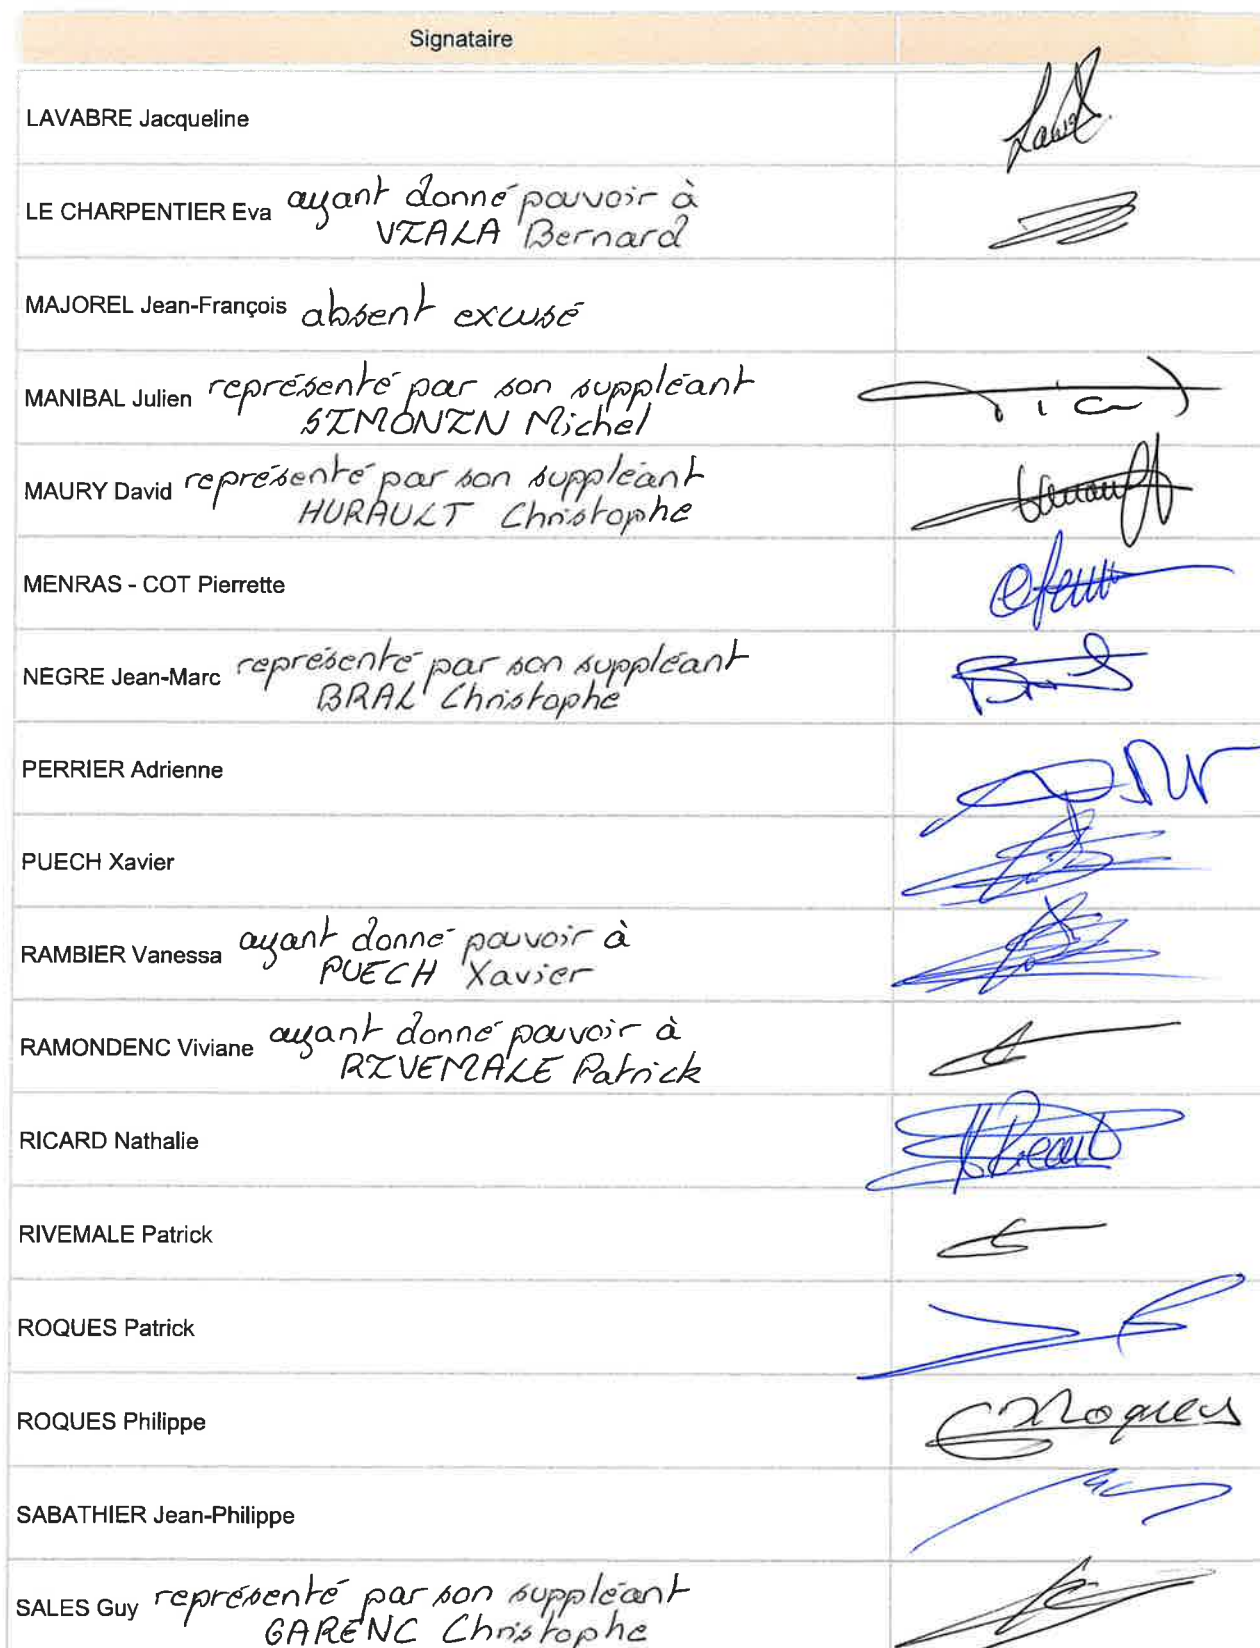 Signataire
LAVABRE Jacqueline
LE CHARPENTIER Eva ayant donné pouvoir à
VIALA Bernard
MAJOREL Jean-François absent excusé
MANIBAL Julien représenté par son suppléant
SIMONIN Michel
MAURY David représenté par son suppléant
HURAULT Christophe
MENRAS - COT Pierrette
NEGRE Jean-Marc représenté par son suppléant
BRAL Christophe
PERRIER Adrienne
PUECH Xavier
RAMBIER Vanessa ayant donné pouvoir à
PUECH Xavier
RAMONDENC Viviane ayant donné pouvoir à
RIVEMALE Patrick
RICARD Nathalie
RIVEMALE Patrick
ROQUES Patrick
ROQUES Philippe
Roques
SABATHIER Jean-Philippe
SALES Guy représenté par son suppléant
GARENC Christophe